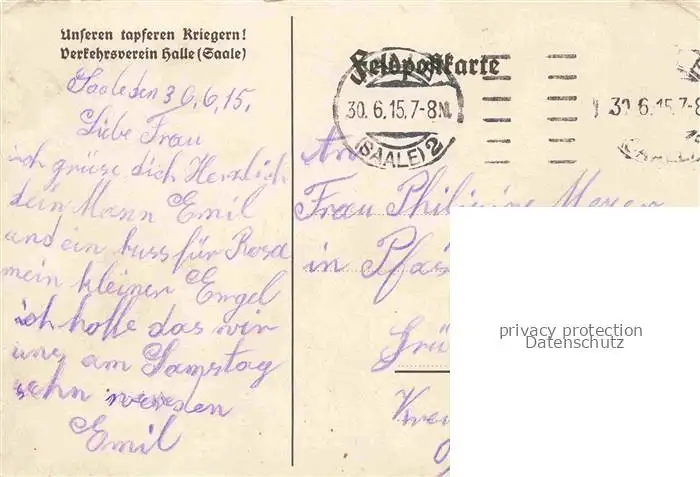 Unseren tapferen Kriegern!
Verkehrsverein Halle (Saale)
Feldpostkarte
30. 6. 15. 7-8 N.
(SAALE) 2
30 6 15. 7-8
Saale den 30.6.15.
Liebe Frau
ich grüse dich Herzlich
dein Mann Emil
und ein kuss für Rosa
mein kleiner Engel
ich hoffe das wir
uns am Samstag
sehn werden
Emil
An
Frau Philipine Meyer
in Pfäs
Grü
Krei
privacy protection
Datenschutz